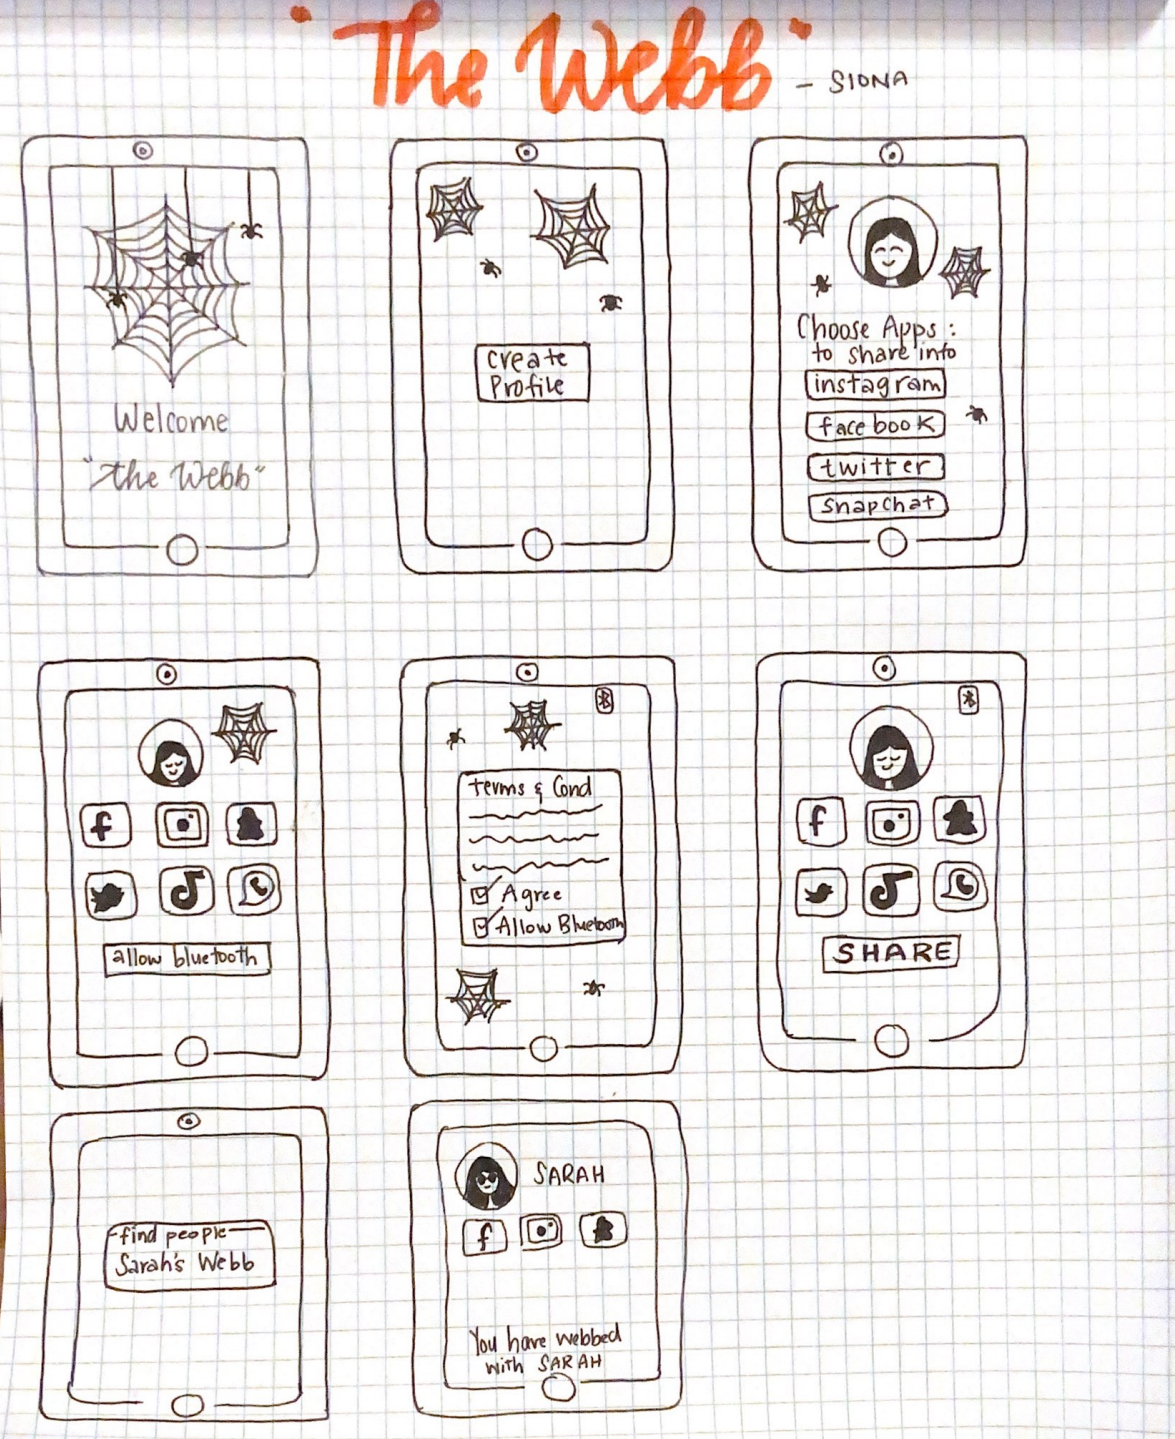 "The Webb" - SIONA
Welcome
"The Webb"
Create
Profile
Choose Apps :
to share into
instagram
facebook
twitter
snapchat
allow bluetooth
terms & Cond
Agree
Allow Bluetooth
SHARE
find people
Sarah's Webb
SARAH
You have webbed
with SARAH